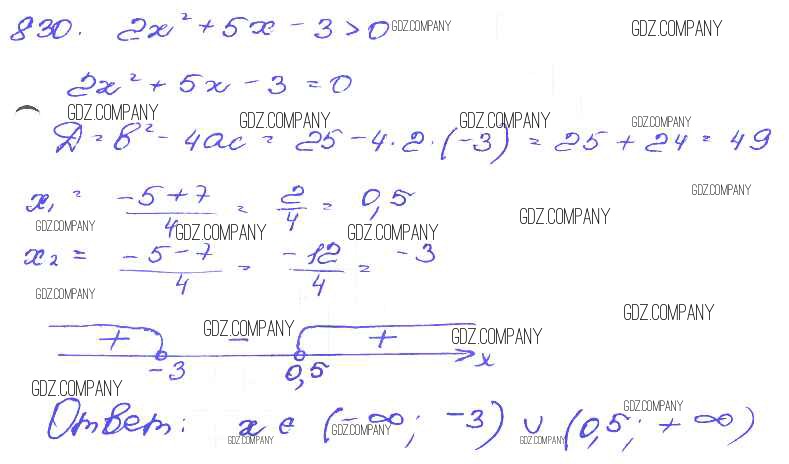 830. 2x² + 5x - 3 > 0 GDZ.COMPANY GDZ.COMPANY
2x² + 5x - 3 = 0
GDZ.COMPANY GDZ.COMPANY GDZ.COMPANY GDZ.COMPANY
Д = b² - 4ac = 25 - 4·2·(-3) = 25 + 24 = 49
GDZ.COMPANY
x₁ = (-5+7)/4 = 2/4 = 0,5
GDZ.COMPANY GDZ.COMPANY GDZ.COMPANY GDZ.COMPANY
x₂ = (-5-7)/4 = -12/4 = -3
GDZ.COMPANY GDZ.COMPANY
+ GDZ.COMPANY - + GDZ.COMPANY
-3 0,5 x
GDZ.COMPANY
Ответ: x ∈ (-∞; -3) ∪ (0,5; +∞)
GDZ.COMPANY GDZ.COMPANY GDZ.COMPANY GDZ.COMPANY